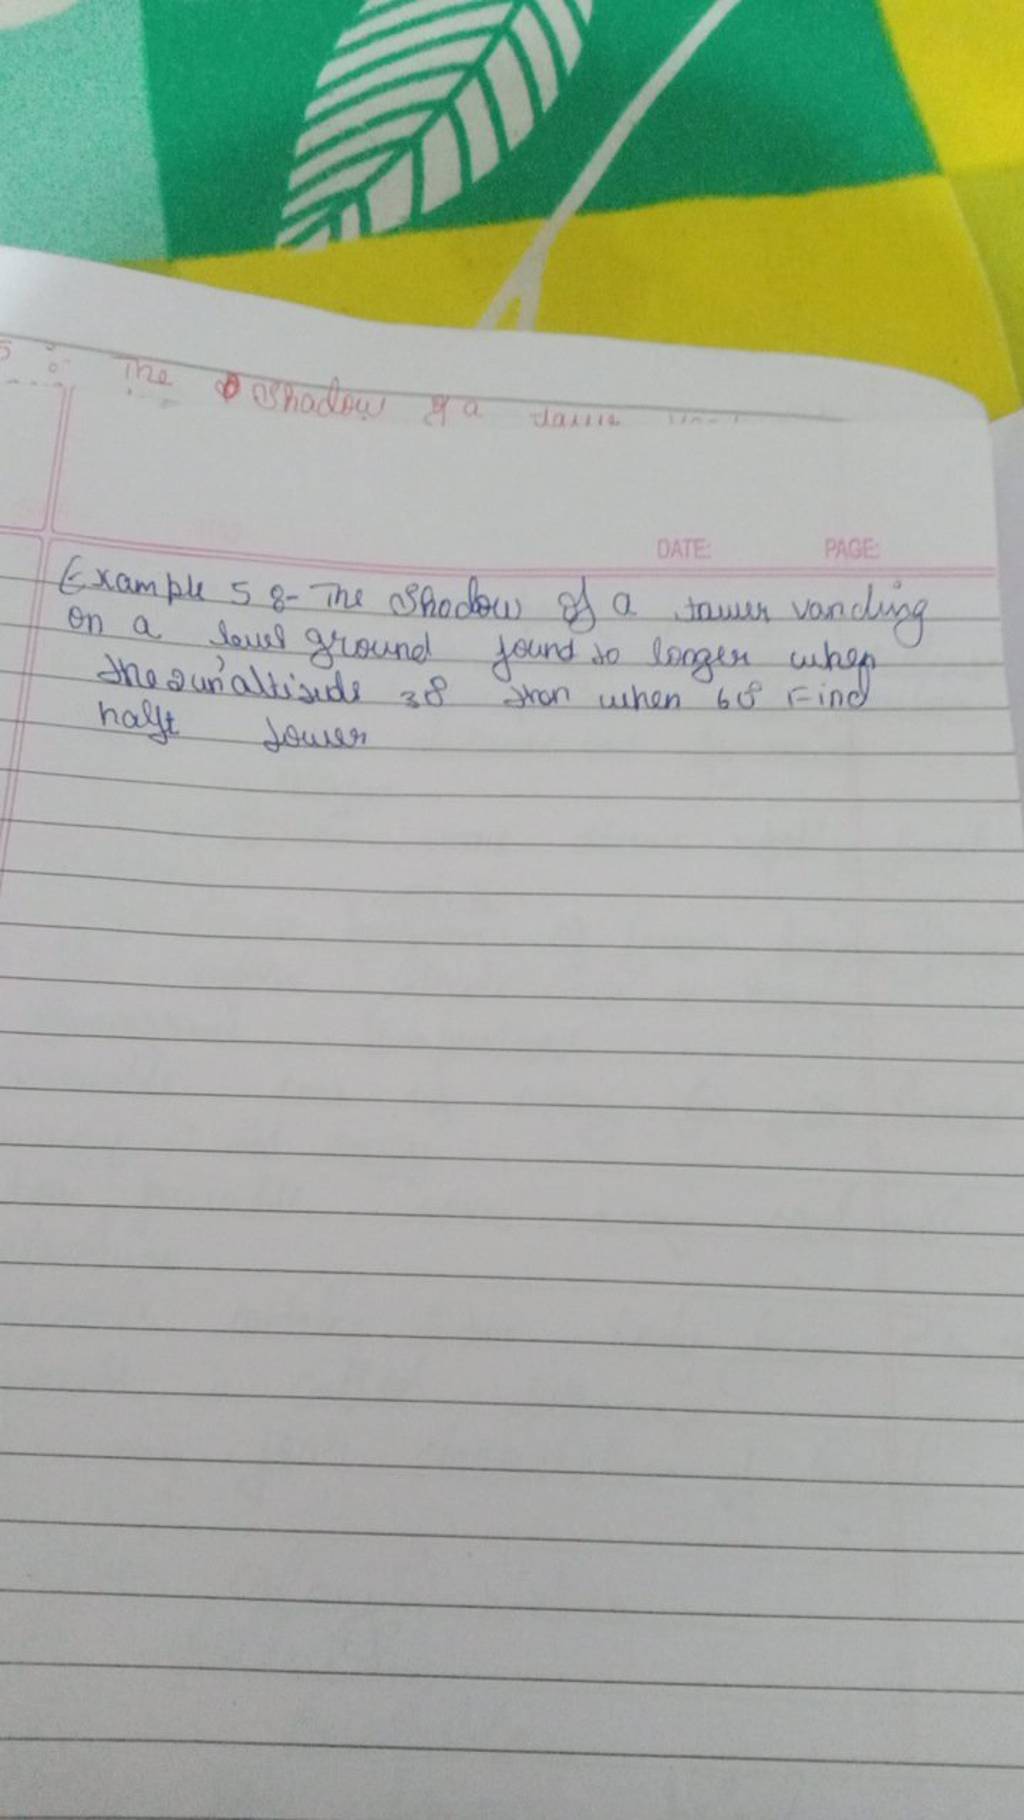 The Shadow of a
DATE: PAGE:
Example 5 8- The Shadow of a tower vanding
on a level ground found so longer when
the sun'altisude 30° than when 60° Find
halft tower